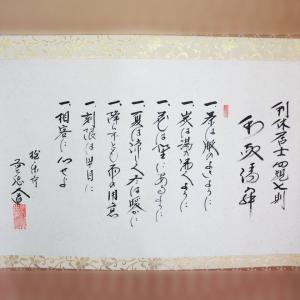 利休居士四規七則
和敬清寂
一、茶は服のよきように
一、炭は湯の沸くように
一、花は野にあるように
一、夏は涼しく冬は暖かに
一、降らずとも雨の用意
一、刻限は早目に
一、相客に心せよ